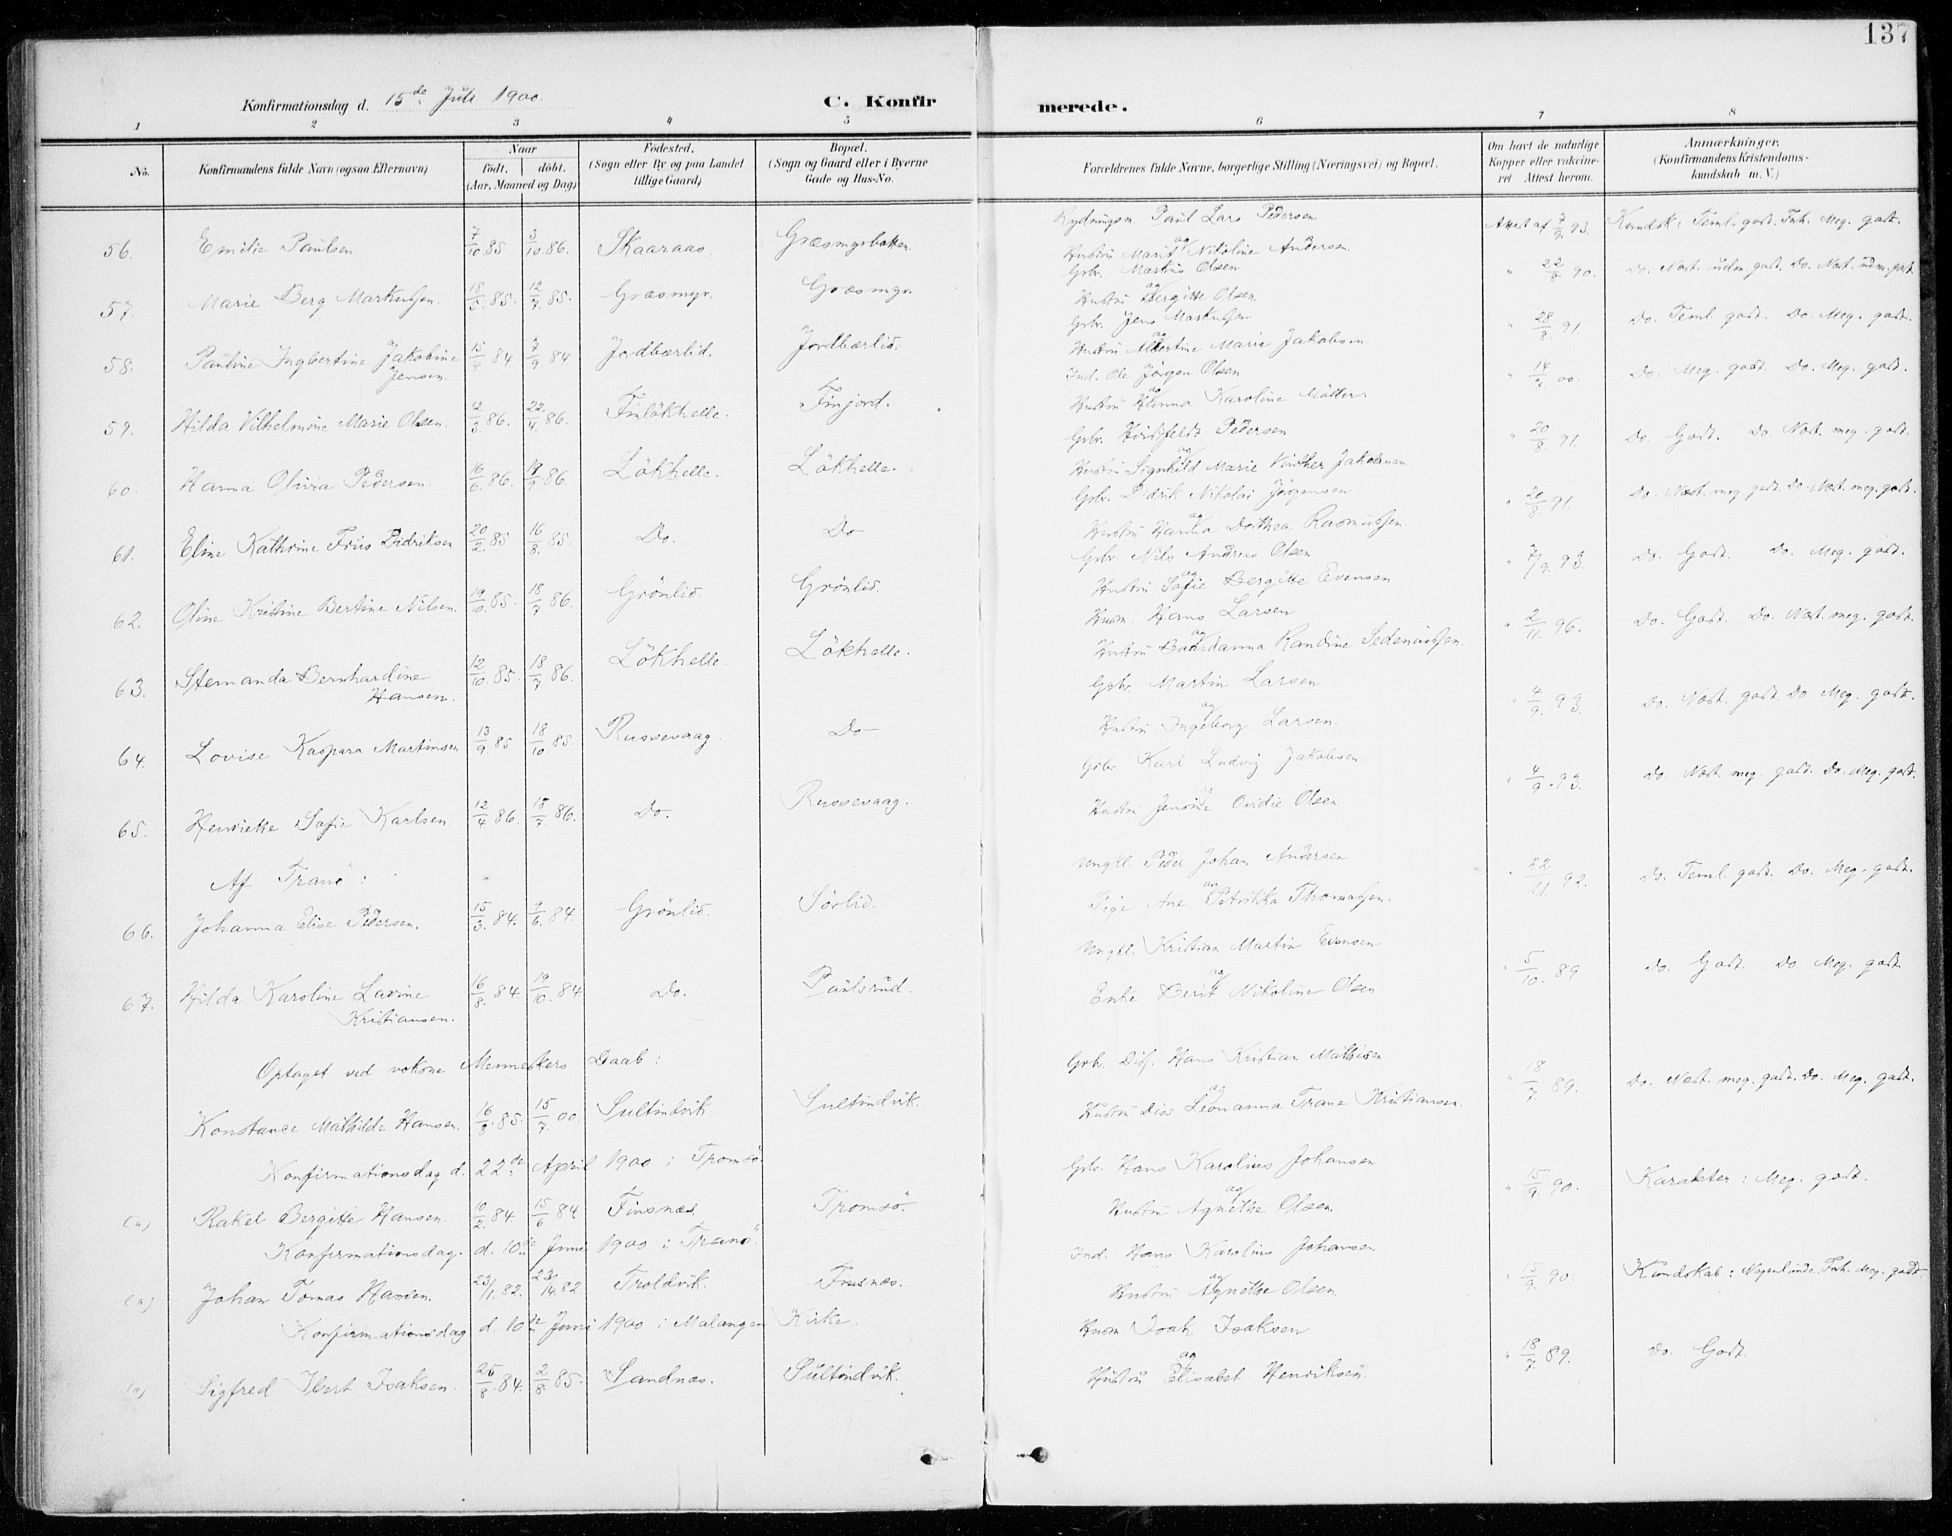 137
Konfirmationsdag d. 15de Juli 1900. C. Konfir merede.
1 2 3 4 5 6 7 8
No. Konfirmandens fulde Navn (ogsaa Efternavn) Naar født, døbt. (Aar, Maaned og Dag) Fødested. (Sogn eller By og paa Landet tillige Gaard) Bopæl. (Sogn og Gaard eller i Byerne Gade og Hus-No. Forældrenes fulde Navne, borgerlige Stilling (Næringsvei) og Bopæl. Om havt de naturlige Kopper eller vakcineret. Attest herom. Anmærkninger. (Konfirmandens Kristendomskundskab m. V.)
56. Emilie Paulsen 7/10 85 3/10 86. Skaaraas. Græsmyrbakken. Rydningsm. Paul Lars Pedersen og Hustru Marit Nikoline Andersen. Attest af 7/9 93. Kundsk.: Teml. godt. Fh. Meg. godt.
57. Marie Berg Markussen. 18/5 85. 12/7 85. Græsmyr. Græsmyr. Gbr. Markus Olsen og Hustru Bergitte Olsen. " 22/8 90. Do. Næst. udm. godt. Do. Næst. udm. godt.
58. Pauline Ingbertine Jakobine Jensen. 84 7/9 84 Jordbærlid. Jordbærlid. Gbr. Jens Markussen og Hustru Albertine Marie Jakobsen " 28/8 91 Do. Teml. godt. Do. Meg. godt.
59. Hilda Vilhelmine Marie Olsen. 12/3 86. 22/4 86. Finlökhelle. Finjord. Ind. Ole Jørgen Olsen og Hustru Hanna Karoline Möller. " 14/7 00. Do. Meg. godt. Do. Meg. godt.
60. Hanna Olivia Pedersen. 16/6 86. 86 Lökhelle. Lökhelle. Gbr. Hvidfeldt Pedersen og Hustru Signhild Marie Vinther Jakobsen " 20/8 91. Do. Godt. Do. Næst. meg. godt.
61. Eline Kathrine Friis Didriksen 20/2 85 16/8 85. Do. Do Gbr. Didrik Nikolai Jörgensen og Hustru Hanna Dorthea Rasmussen " 20/8 91. Do. Næst. meg. godt. Do. Næst. meg. godt.
62. Oline Kristine Bertine Nilsen. 19/10 85. 18/7 86. Grönlid. Grönlid. Gbr. Nils Andreas Olsen og Hustru Sofie Bergitte Evensen. " 7/9 93. Do. Godt. Do. Meg. godt.
63. Bernhardine Hansen. 12/10 85. 18/7 86. Lökhelle. Lökhelle. Husm. Hans Larsen og Hustru Randine " 2/11 96. Do. Godt. Do. Næst. meg. godt.
64. Lovise Kaspara Martinsen 13/9 85 18/10 85. Russevaag. Do Gbr. Martin Larsen og Hustru Ingeborg Larsen. " 4/9 93. Do. Næst. godt. Do. Meg. godt.
65. Henriette Sofie Karlsen 12/4 86. 18/7 86. Do. Russevaag. Gbr. Karl Ludvig Jakobsen og Hustru Jensine Ovidie Olsen. " 4/9 93. Do. Næst. meg. godt. Do. Meg. godt.
Af Tranö:
66. Johanna Elise Pedersen. 15/3 84. 9/6 84. Grönlid. Sörlid. Ungkl. Peder Johan Andersen og Pige Ane Petrikka Thomassen. " 22/11 92. Do. Teml. godt. Do. Meg. godt.
67. Hilda Karoline Lavine Kristiansen. 16/8 84 19/10 84 Do. Paulsrud. Ungkl. Kristian Martin Evensen og Enke Berit Nikoline Olsen " 5/10 89 Do. Godt. Do Meg. godt.
Optaget ved voksne Menneskers Daab:
Konstance Mathilde Hansen. 16/8 85. 15/7 00. Sultindvik Sultindvik. Gbr. Diss. Hans Kristian Mathisen og Hustru Diss. Leonanna Trane Kristiansen. " 18/7 89. Do. Næst. meg. godt. Do. Meg. godt.
Konfirmationsdag d. 22de April 1900 i Tromsö.
(a) Rakel Bergitte Hansen. 10/2 84 15/6 84 Finsnæs. Tromsö. Gbr. Hans Karolius Johansen og Hustru Agnethe Olsen. " 15/9 90. Karakter: Meg. godt.
Konfirmationsdag d. 10de Juni 1900 i Tranö.
(a) Johan Tomas Hansen. 23/1 82. 82 Troldvik. Finsnæs. Ind. Hans Karolius Johansen og Hustru Agnethe Olsen. " 15/9 90. Kundskab: Nogenlunde. Fh. Meg. godt
Konfirmationsdag d. 10de Juni 1900 i Malangen Kirke.
(a) Sigfred Isaksen. 25/8 84. 2/8 85. Sandnæs. Sultindvik. Husm. Isak Isaksen og Hustru Elisabet Henriksen. " 18/7 89. Do. Godt.